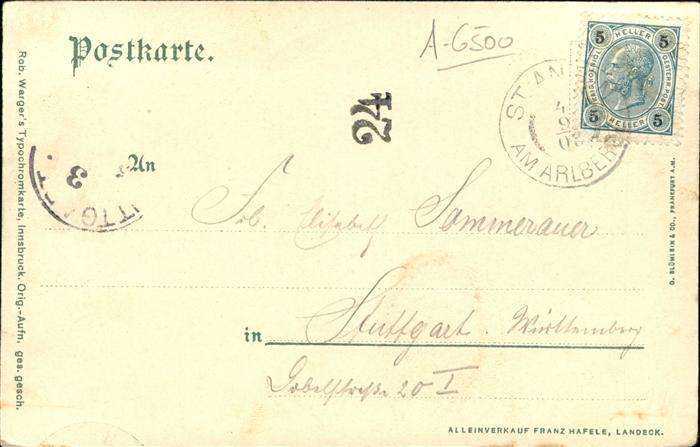 Postkarte.
A-6500
5 HELLER 5
5 HELLER 5
ST. AN
4
9
03
AM ARLBERG
24
TTG
3
An
Frl. Elisabeth Sommerauer
in Stuttgart. Württemberg
Gobelstraße 20 I
Rob. Warger's Typochromkarte, Innsbruck. Orig.-Aufn. ges. gesch.
D. BLÜMLEIN & CO., FRANKFURT A.M.
ALLEINVERKAUF FRANZ HAFELE, LANDECK.